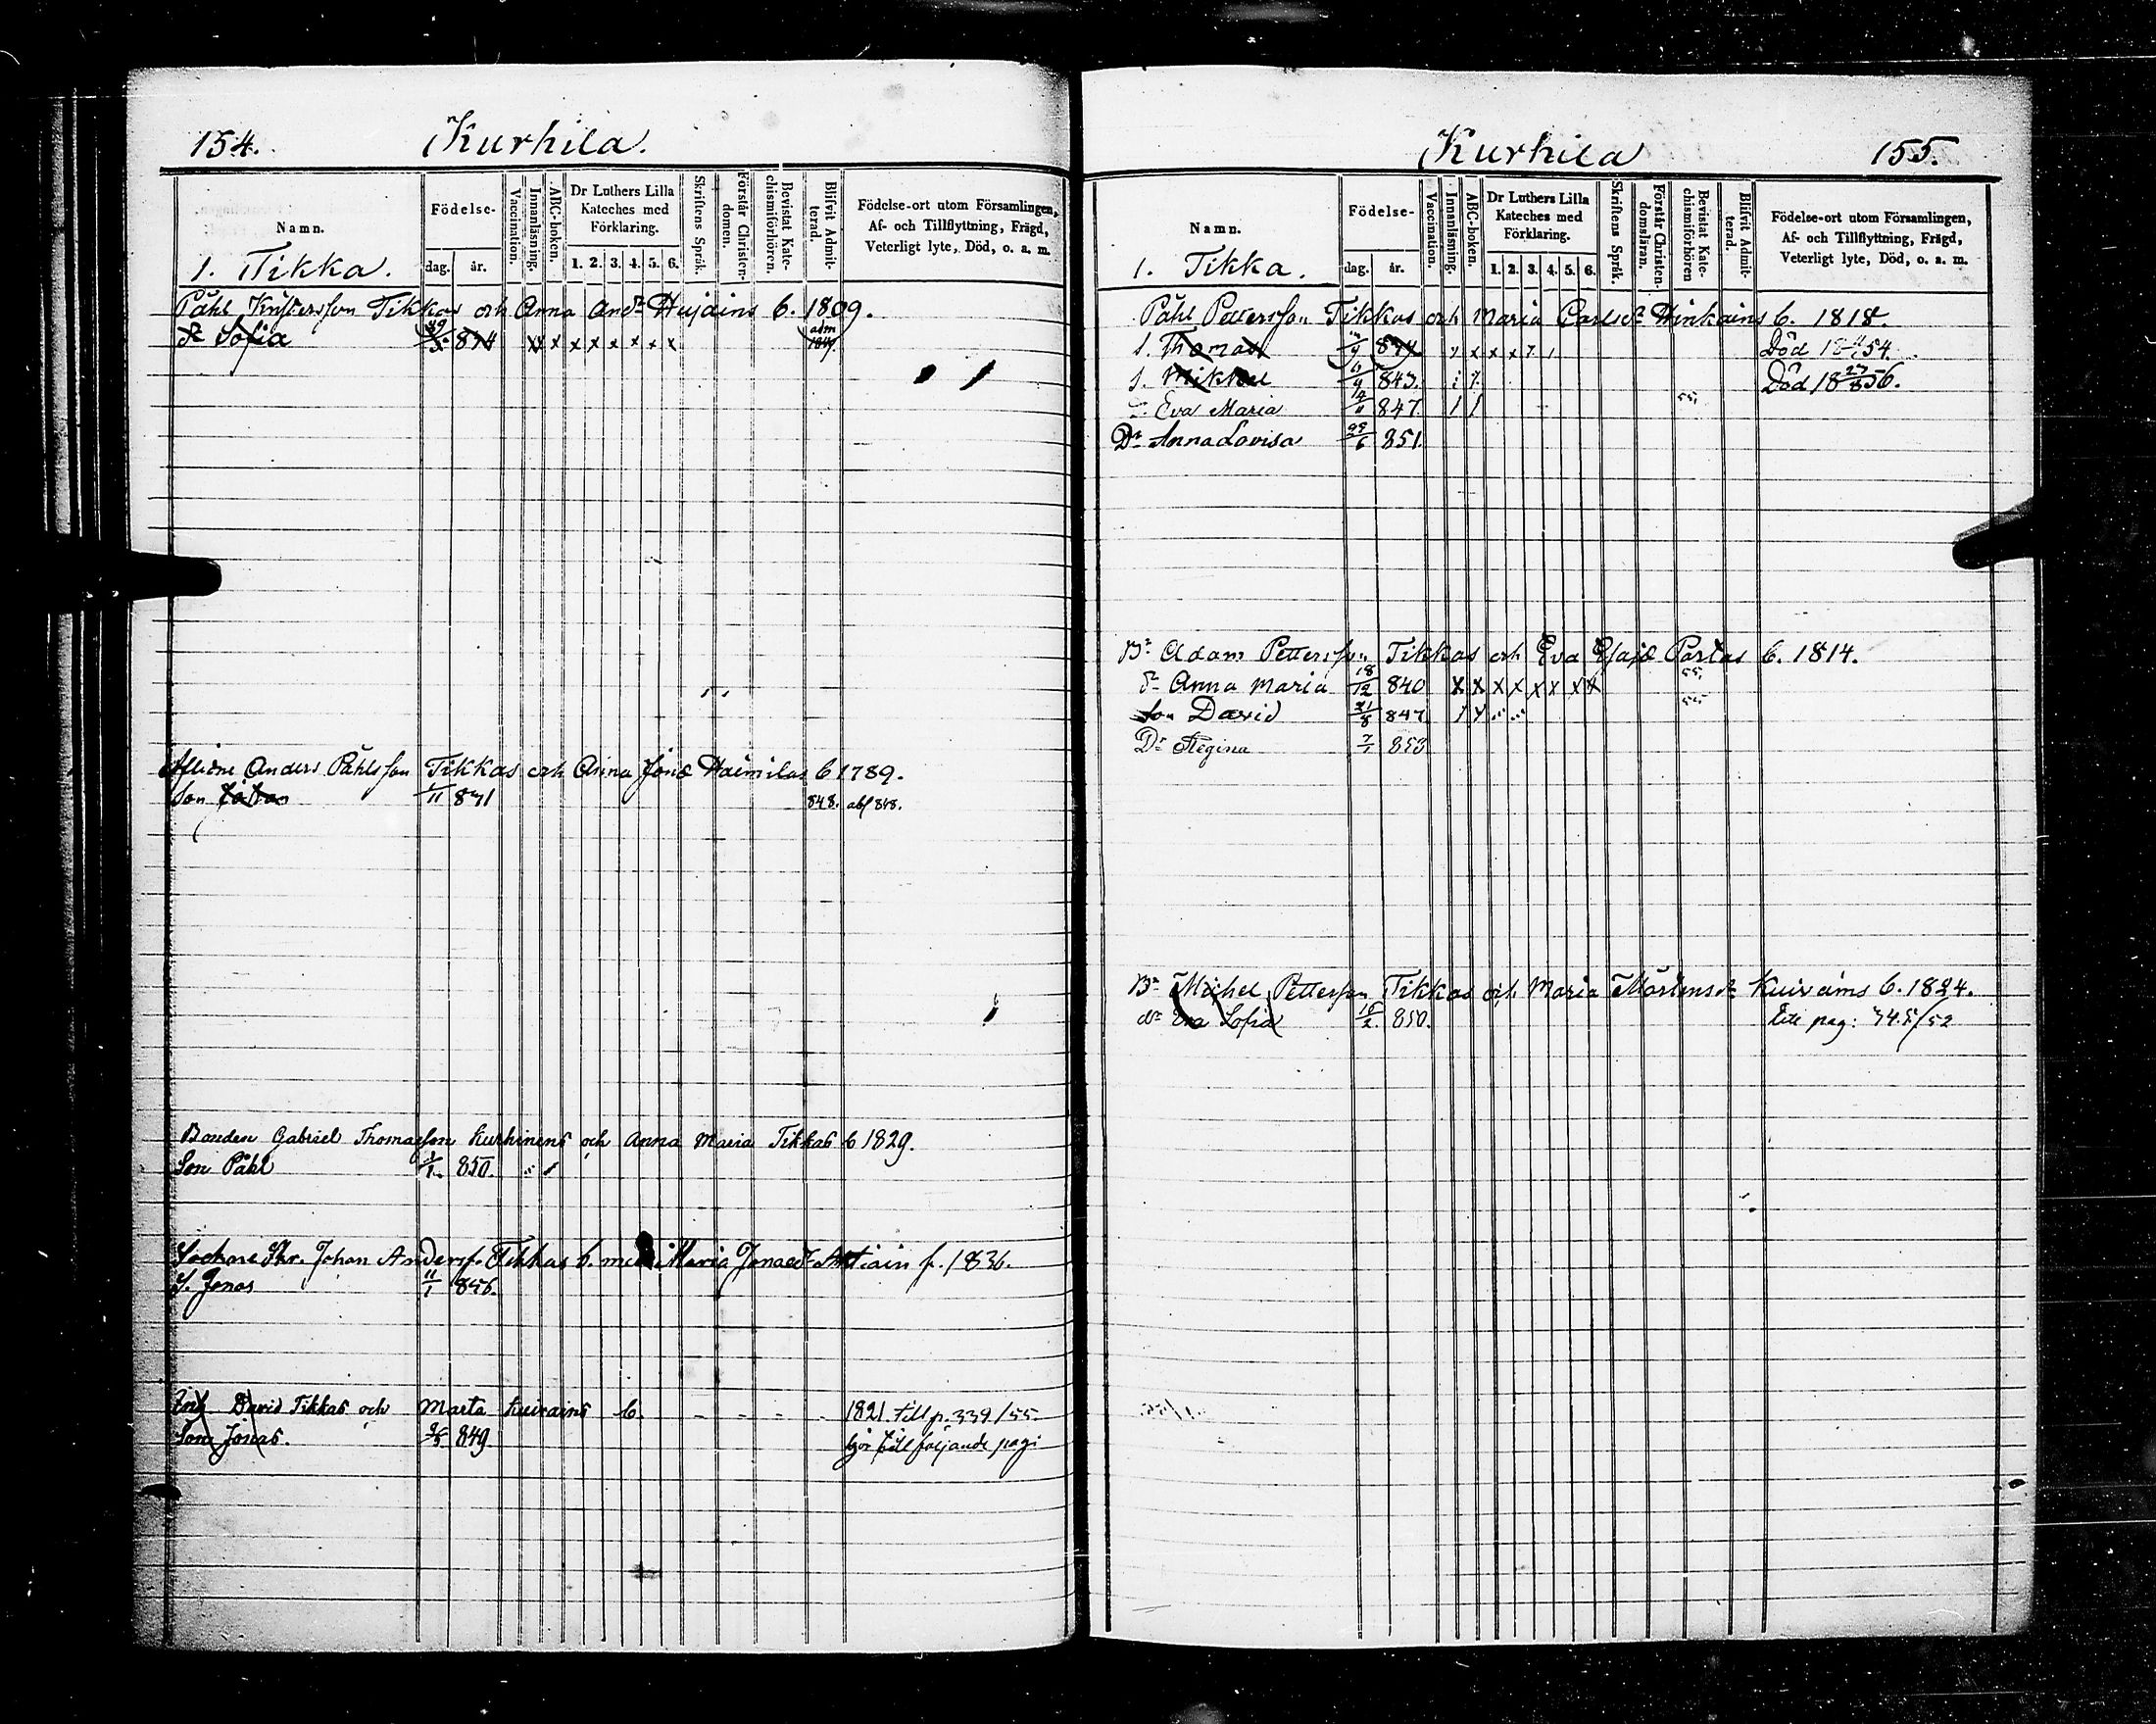 154.
Kurhila.
Namn.
Födelse-
dag. år.
Vaccination.
Innanläsning.
ABC-boken.
Dr Luthers Lilla
Kateches med
Förklaring.
1. 2. 3. 4. 5. 6.
Skriftens Språk.
Förstår Christen-
domen.
Bevistat Kate-
chismiförhören.
Blifvit Admit-
terad.
Födelse-ort utom Församlingen,
Af- och Tillflyttning, Frägd,
Veterligt lyte, Död, o. a. m.
1. Tikka.
Påhl Tikkas och Anna And:dr 6. 1809.
dr Sofia x x x x x x x adm
Aflidne Anders Påhlsson Tikkas och Anna Jonæ Haimilas 6 1789.
Son 1/11 831 848. abs 848.
Bonden Gabriel Thomasson Kurhinens och Anna Maria Tikkas 6 1829.
Son Påhl 850.
Sockne Skr. Johan Andersf. Tikkas b. med Maria Jonaed:r f. 1836.
S. Jonas 11/1 856.
David Tikkas och Marta Kuivains 6. - - - - 1821. till p. 339/55.
Son Jonas. 849. hör till följande pagi
Kurhila
155.
Namn.
Födelse-
dag. år.
Vaccination.
Innanläsning.
ABC-boken.
Dr Luthers Lilla
Kateches med
Förklaring.
1. 2. 3. 4. 5. 6.
Skriftens Språk.
Förstår Christen-
domsläran.
Bevistat Kate-
chismiförhören
Blifvit Admit-
terad.
Födelse-ort utom Församlingen,
Af- och Tillflyttning, Frägd,
Veterligt lyte, Död, o. a. m.
1. Tikka.
Påhl Pettersson Tikkas och Maria Carlsdr Hinkains 6. 1818.
s. Thomas Död 54.
s. Mikkel 6/9 843. Död 18 27/8 56.
Eva Maria 847. 55.
Dr Anna Lovisa 851.
Br Adam Pettersson Tikkas och Eva Esajæ Partas 6. 1814.
dr Anna Maria 18/12 840 x x x x x x x x 55.
Son David 21/8 847 55
Dr Regina 7/1 853
Br Michel Pettersson Tikkas och Maria Mårtensdr Kuivains 6. 1824.
dr Eva Sofia 850. till pag: 745/52